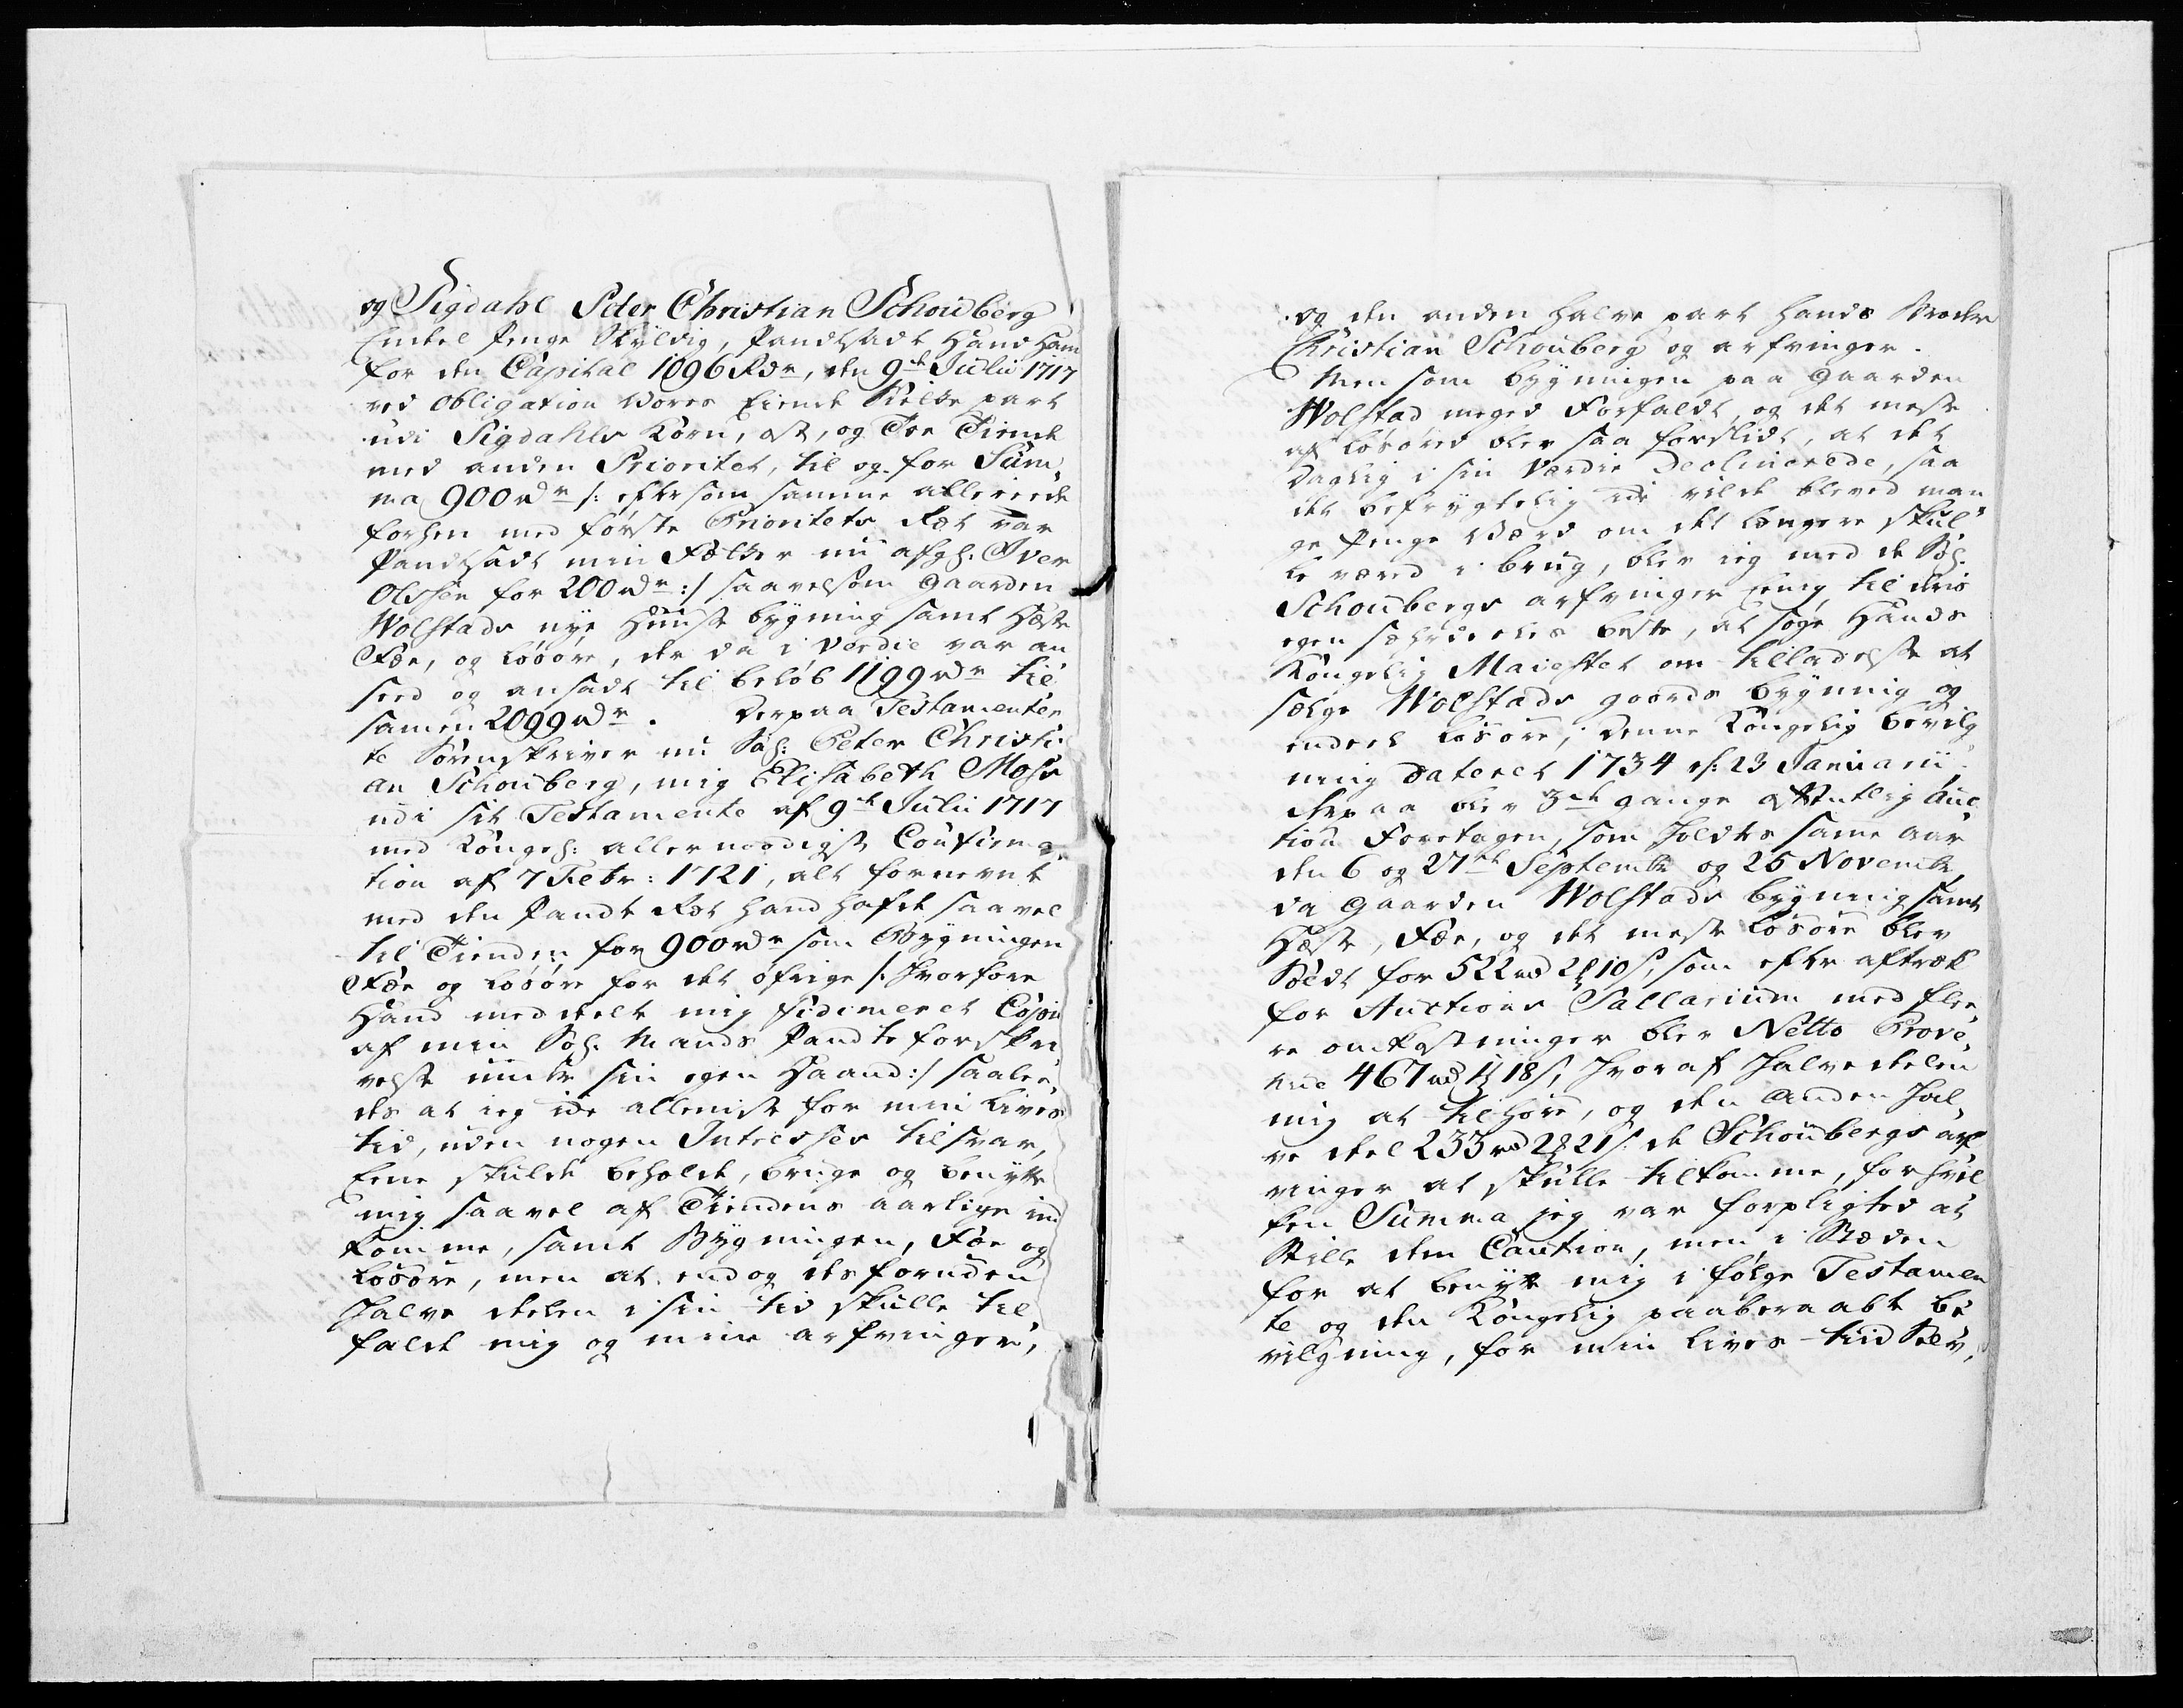 og Sigdahl Peter Christian Schouberg
Enckel Penge Skyldig, Pandtsadt hand ham
for den Capital 1096 Rdr, den 9de Julii 1717
ved Obligation vores Eiende part
udi Sigdahls Korn, ost, og Foe Tiende
med anden Prioritet, til og for Sum¬
ma 900 rdr /: eftersom samme allereede
forhen med første Prioritets Ret var
Pandtsadt min Fatter nu afgl. Iver
Olssen for 200 rdr :/ saavelsom gaarden
Wolstads nye Huuse bygning samt Heste
Fæe, og Løsøre, der da i Verdie var an
seed og ansadt til beløb 1199 rdr til
samen 2099 rdr. Derpaa Testamenter
te Sorenskriver nu Sal: Peter Christi
an Schouberg, mig Elisabeth Mosis
udi sit Testamente af 9de Julii 1717
med Kongel: allernaadigst Confirma
tion af 7 Febr: 1721, alt fornevnt
med den Pandte Ret hand hafde saavel
til Tienden for 900 rdr som Bygningen
Fæe og Løsøre for det øfrige /: hvorfore
Hand meddeelte mig fidimeret Copie
af min Sal. Mands Pandte forskri
velse under sin egen Haand :/ saalee
des at ieg allene for min Lives
tid, uden nogen Intresser tilsvar,
Eene skulde beholde, bruge og benytte
mig saavel af Tiendens aarlige ind
komme, samt Bygningen, Fæe og
Løsøre, men at endog desforuden
halve deelen i sin tid skulle til
falde mig og mine arfvinger,
og den anden halve part hands Broder
Christian Schouberg og arfvinger.
Men som bygningen paa gaarden
Wolstad meged Forfaldt, og det meste
af Løsøred blev saa forslidt, at det
Daglig i sin Værdie Declinerede, saa
det befrygtelig vilde bleved man
ge Penge Værd om det længere skul
le været i brug, blev ieg med de Sal.
Schoubergs arfvinger eenig til
egen beste, at søge Hands
Kongelig Maiestet om tilladelse at
sælge Wolstads gaards bygning og
endeel Løsøre, denne Kongelig bevilg
ning dateret 1734 d: 23 Januarii
derpaa blev 3de gange offentlig Auc
tion Foretagen, som holdtes same aar
den 6 og 27de Septembr og 25 Novembr
da gaarden Wolstads bygning samt
Heste, Fæe, og det meste Løsøre blev
Soldt for 522 rd 2 10 s, som efter aftræk
for Auctions Sallarium med flee
re omkostninger blev Netto Prove
nue 467 rd 1 18 s, hvoraf halve deelen
mig at tilhøre, og den anden hal
ve deel 233 rd 2 21 s: de Schoubergs arf
vinger at skulle tilkomme, for hvil
ken Summa jeg var forpligted at
Stille dem Caution, men i Steden
for at benytte mig i følge Testamen
te og den Kongelig paaberaabte be
vilgning, for min Lives-tiid Selv,